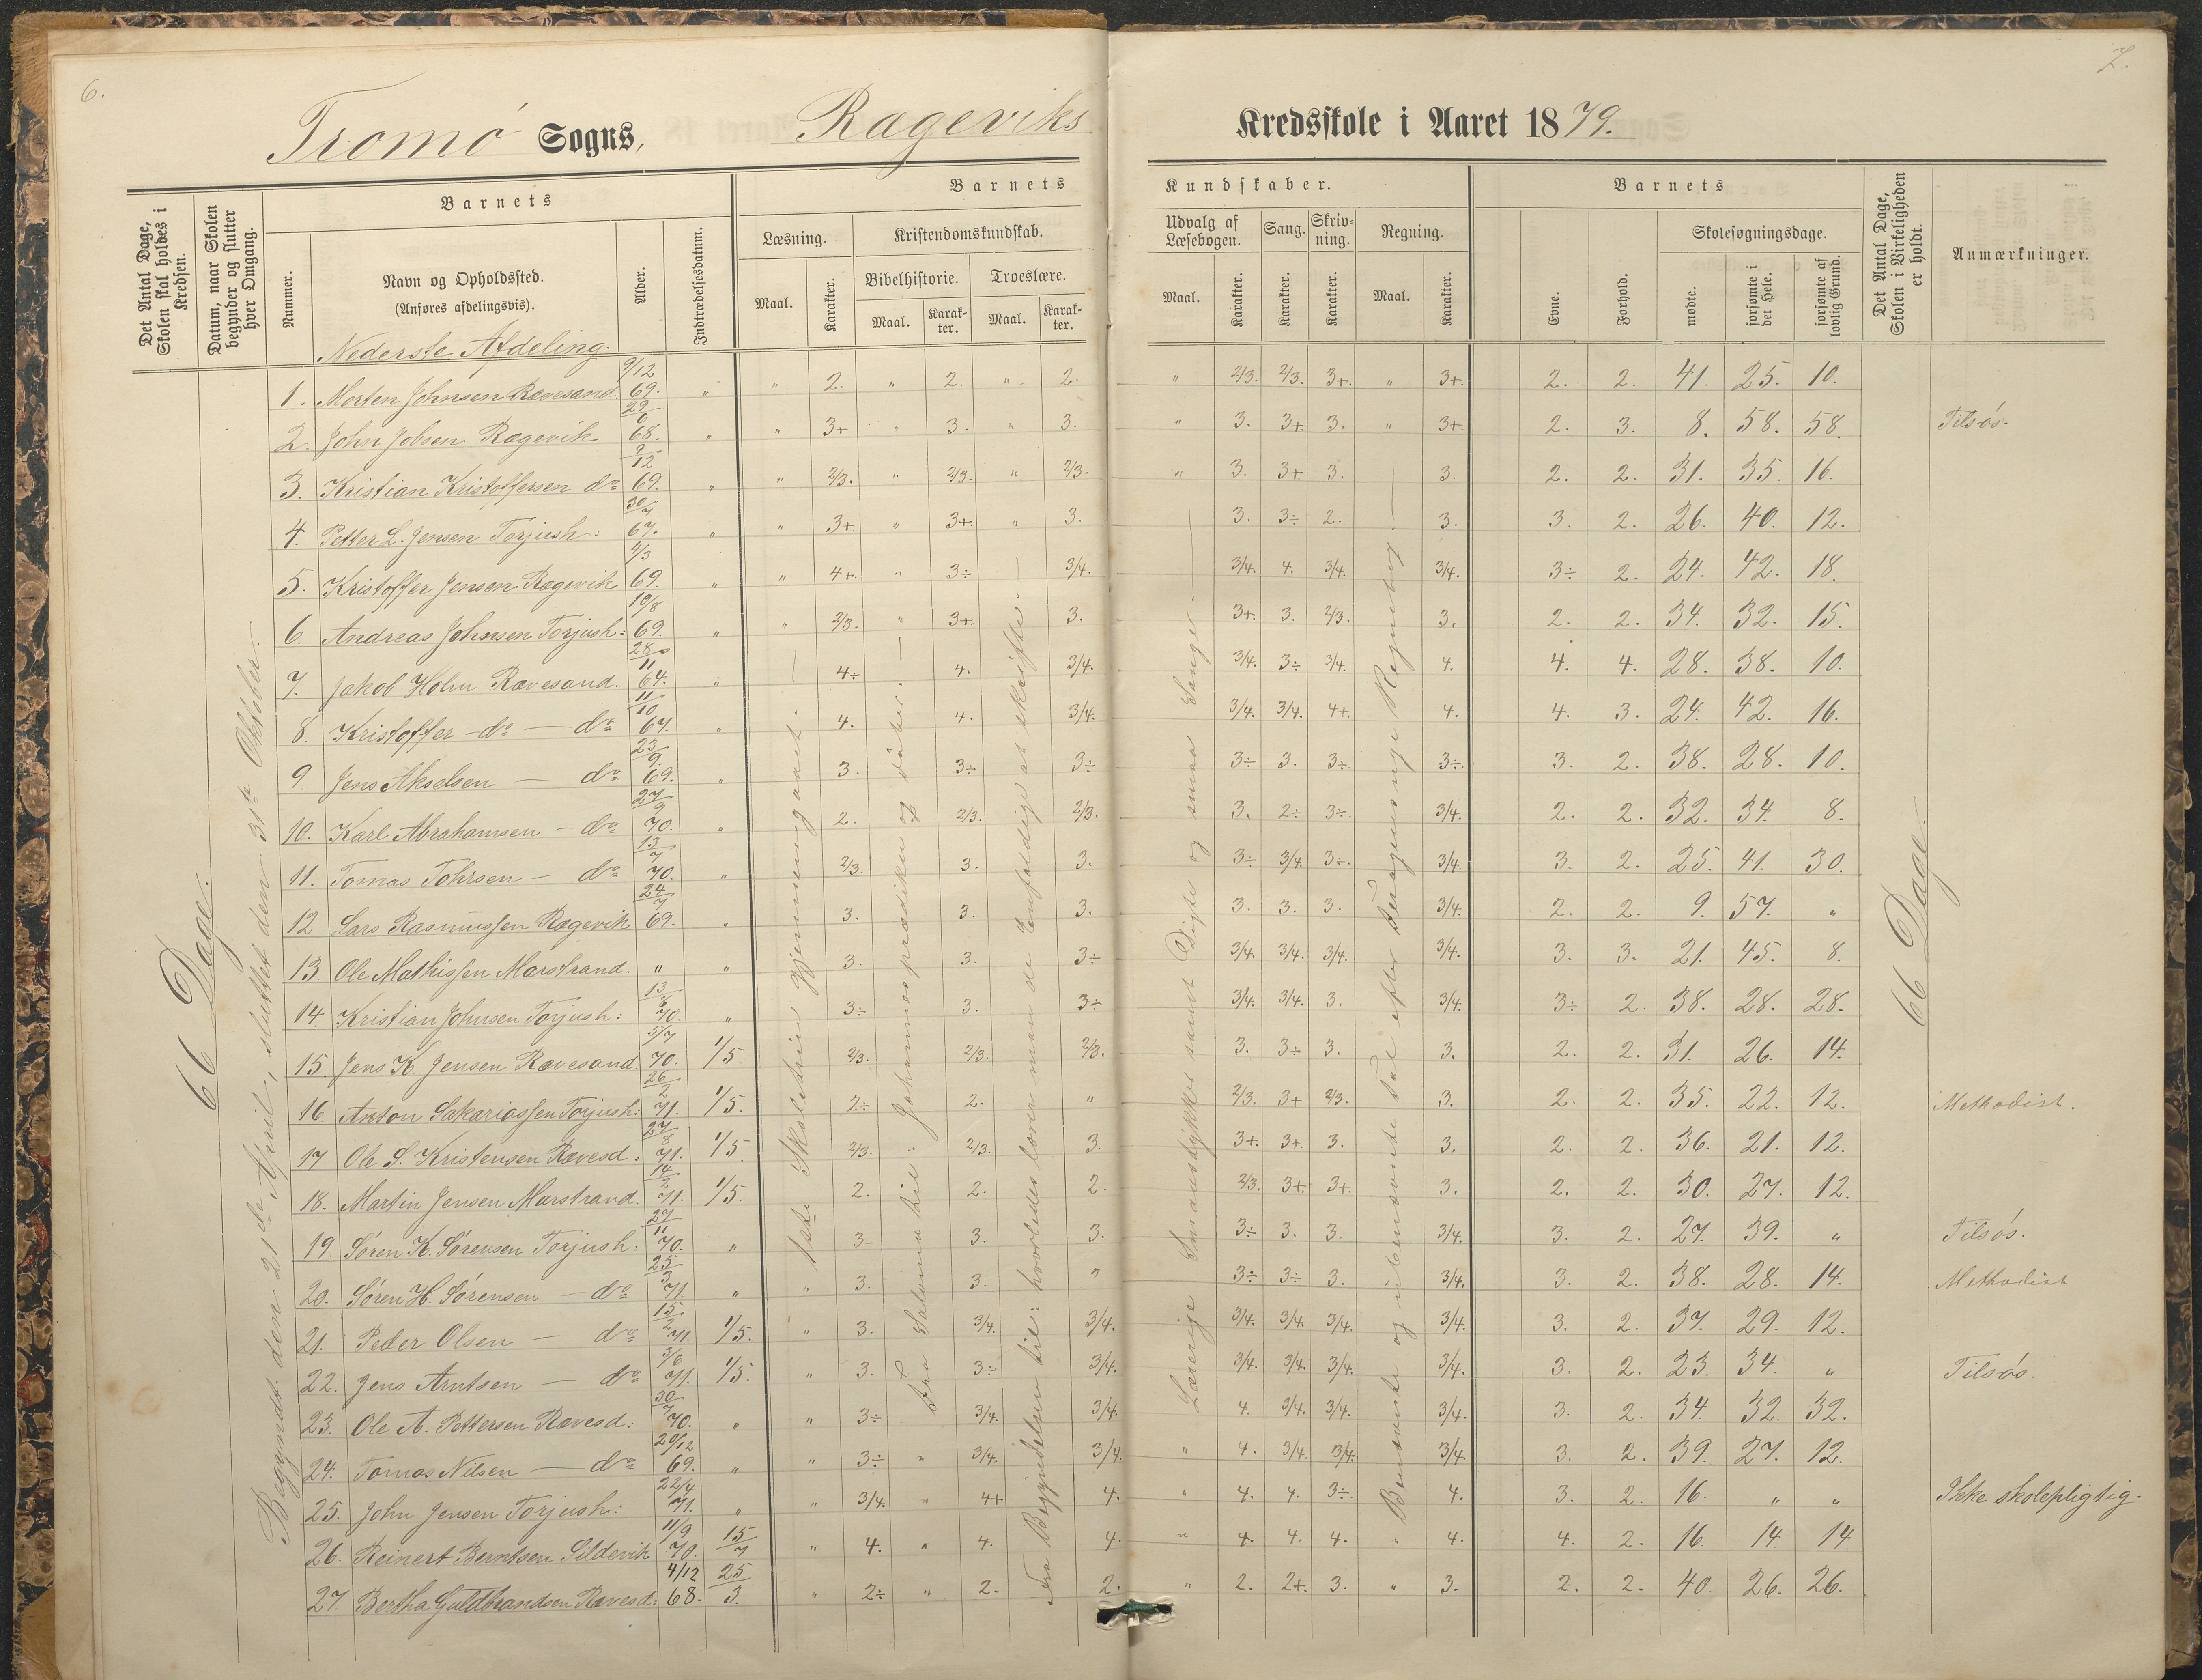 6.
7.
Tromö Sogns, Rageviks Kredsskole i Aaret 1879.
Det Antal Dage, Skolen skal holdes i Kredsen.
Datum, naar Skolen begynder og slutter hver Omgang.
Barnets
Nummer.
Navn og Opholdssted. (Anføres afdelingsvis).
Alder.
Indtrædelsesdatum.
Barnets Kundskaber.
Læsning.
Maal.
Karakter.
Kristendomskundskab.
Bibelhistorie.
Maal.
Karakter.
Troeslære.
Maal.
Karakter.
Udvalg af Læsebogen.
Maal.
Karakter.
Sang.
Karakter.
Skrivning.
Karakter.
Regning.
Maal.
Karakter.
Barnets
Evne.
Forhold.
Skolesøgningsdage.
mødte.
forsømte i det Hele.
forsømte af lovlig Grund.
Det Antal Dage, Skolen i Virkeligheden er holdt.
Anmærkninger.
66 Dage.
Begyndt den 21de April, sluttet den 31te Oktober.
Nederste Afdeling.
1. Morten Johnsen Rævesand. 9/12 69. " " 2. " 2. " 2. " 2/3. 2/3. 3+. " 3+. 2. 2. 41. 25. 10.
2. John Jobsen Ragevik 29/6 68. " " 3+ " 3. " 3. " 3. 3+. 3. " 3+. 2. 3. 8. 58. 58. Tilsøs.
3. Kristian Kristoffersen do 9/12 69. " " 2/3. " 2/3. " 2/3. " 3. 3+. 3. 3. 2. 2. 31. 35. 16.
4. Petter L. Jensen Torjush: 30/7 67. " " 3+. " 3+. " 3. 3. 3÷ 2. 3. 3. 2. 26. 40. 12.
5. Kristoffer Jensen Ragevik 4/3 69. " " 4+. " 3÷ 3/4. 3/4. 4. 3/4. 3/4. 3÷ 2. 24. 42. 18.
6. Andreas Johnsen Torjush: 10/8 69. " " 2/3. " 3+. 3. 3+. 3. 2/3. 3. 2. 2. 34. 32. 15.
7. Jakob Holm Rævesand. 28/11 64. " 4÷ 4. 3/4. 3/4. 3÷ 3/4. 4. 4. 4. 28. 38. 10.
8. Kristoffer do — do 11/10 67. " 4. 4. 3/4. 3/4. 3/4. 4+. 4. 4. 3. 24. 42. 16.
9. Jens Akselsen — do 23/9 69. " 3. 3÷ 3÷ 3÷ 3. 3÷ 3÷. 3. 2. 38. 28. 10.
10. Karl Abrahamsen — do 27/9 70. " 2. 2/3. 2/3. 3. 2÷ 3÷. 3/4. 2. 2. 32. 34. 8.
11. Tomas Tohrsen — do 13/7 70. " 2/3. 3. 3. 3÷ 3/4. 3÷. 3/4. 3. 2. 25. 41. 30.
12 Lars Rasmussen Ragevik 24/7 69. " 3. 3. 3. 3. 3. 3. 3/4. 2. 2. 9. 57. "
13 Ole Mathissen Marstrand. " " 3. 3. 3÷ 3/4. 3/4. 3/4. 3/4. 3. 3. 21. 45. 8.
14. Kristian Johnsen Torjush: 13/8 70. " 3÷ 3. 3÷ 3/4. 3/4. 3. 3/4. 3÷ 2. 38. 28. 28.
15. Jens K. Jensen Rævesand. 5/7 70. 1/5. 2/3. 2/3. 2/3. 3. 3÷ 3. 3. 2. 2. 31. 26. 14.
16. Anton Sakariassen Torjush: 26/2 71. 1/5. 2÷ 2. " 2/3. 3+ 2/3. 3. 2. 2. 35. 22. 12. Methodist.
17 Ole S. Kristensen Rævesd: 27/8 71. 1/5. 2/3. " 2/3. 3. 3+. 3+. 3. 3. 2. 2. 36. 21. 12.
18. Martin Jensen Marstrand. 14/2 71. 1/5. 2. 2. 2. 2/3. 3+ 3+. 3. 2. 2. 30. 27. 12.
19. Søren K. Sørensen Torjush: 27/11 70. " 3- 3. 3. 3÷ 3. 3. 3/4. 3. 2. 27. 39. " Tilsøs.
20. Søren H. Sørensen — do 25/3 71. " " 3. 3. " 3÷ 3÷ 3. 3/4. 3. 2. 38. 28. 14. Methodist
21. Peder Olsen — do 15/2 71. 1/5. " 3. 3/4. 3/4. 3/4. 3/4. 3/4. 3/4. 3. 2. 37. 29. 12.
22. Jens Arntsen — do 3/6 71. 1/5. " 3. 3÷ 3/4. 3/4. 3/4. 3/4. 3/4. 3. 2. 23. 34. " Tilsøs.
23. Ole A. Pettersen Rævesd: 30/7 70. " " 3÷ 3/4. 3/4. 4. 3/4. 3/4. 3/4. 3. 2. 34. 32. 32.
24. Tomas Nilsen — do 20/12 69. " " 3÷ " 3/4. 3/4. " 4. 3/4. 3/4. 3/4. 3. 2. 39. 27. 12.
25. John Jensen Torjush: 22/4 71. " " 3/4. " 4+ 4. " 4. 4. 3÷. 4. 3. 2. 16. " " Ikke skolepligtig.
26. Reinert Berntsen Sildevik 11/9 70. 15/7 " 4. " 4. 4. " 4. 4. 4. " 4. 4. 2. 16. 14. 14.
27. Bertha Guldbrandsen Rævesd: 4/12 68. 25/3. " 2÷ " 2. 2. " 2. 2+. 3. " 3. 2. 2. 40. 26. 26.
1ste Skoletrin gjennemgaaet.
Fra Salomo til Johannes prædiken og dåber.
Fra Begyndelsen til: hvorledes loven man de Enfoldige at skrifte.
Lærerige Smaastykker samt Digte og smaa Sange.
Benævnte og ubenævnte Tal efter Regnebog
66 Dage.